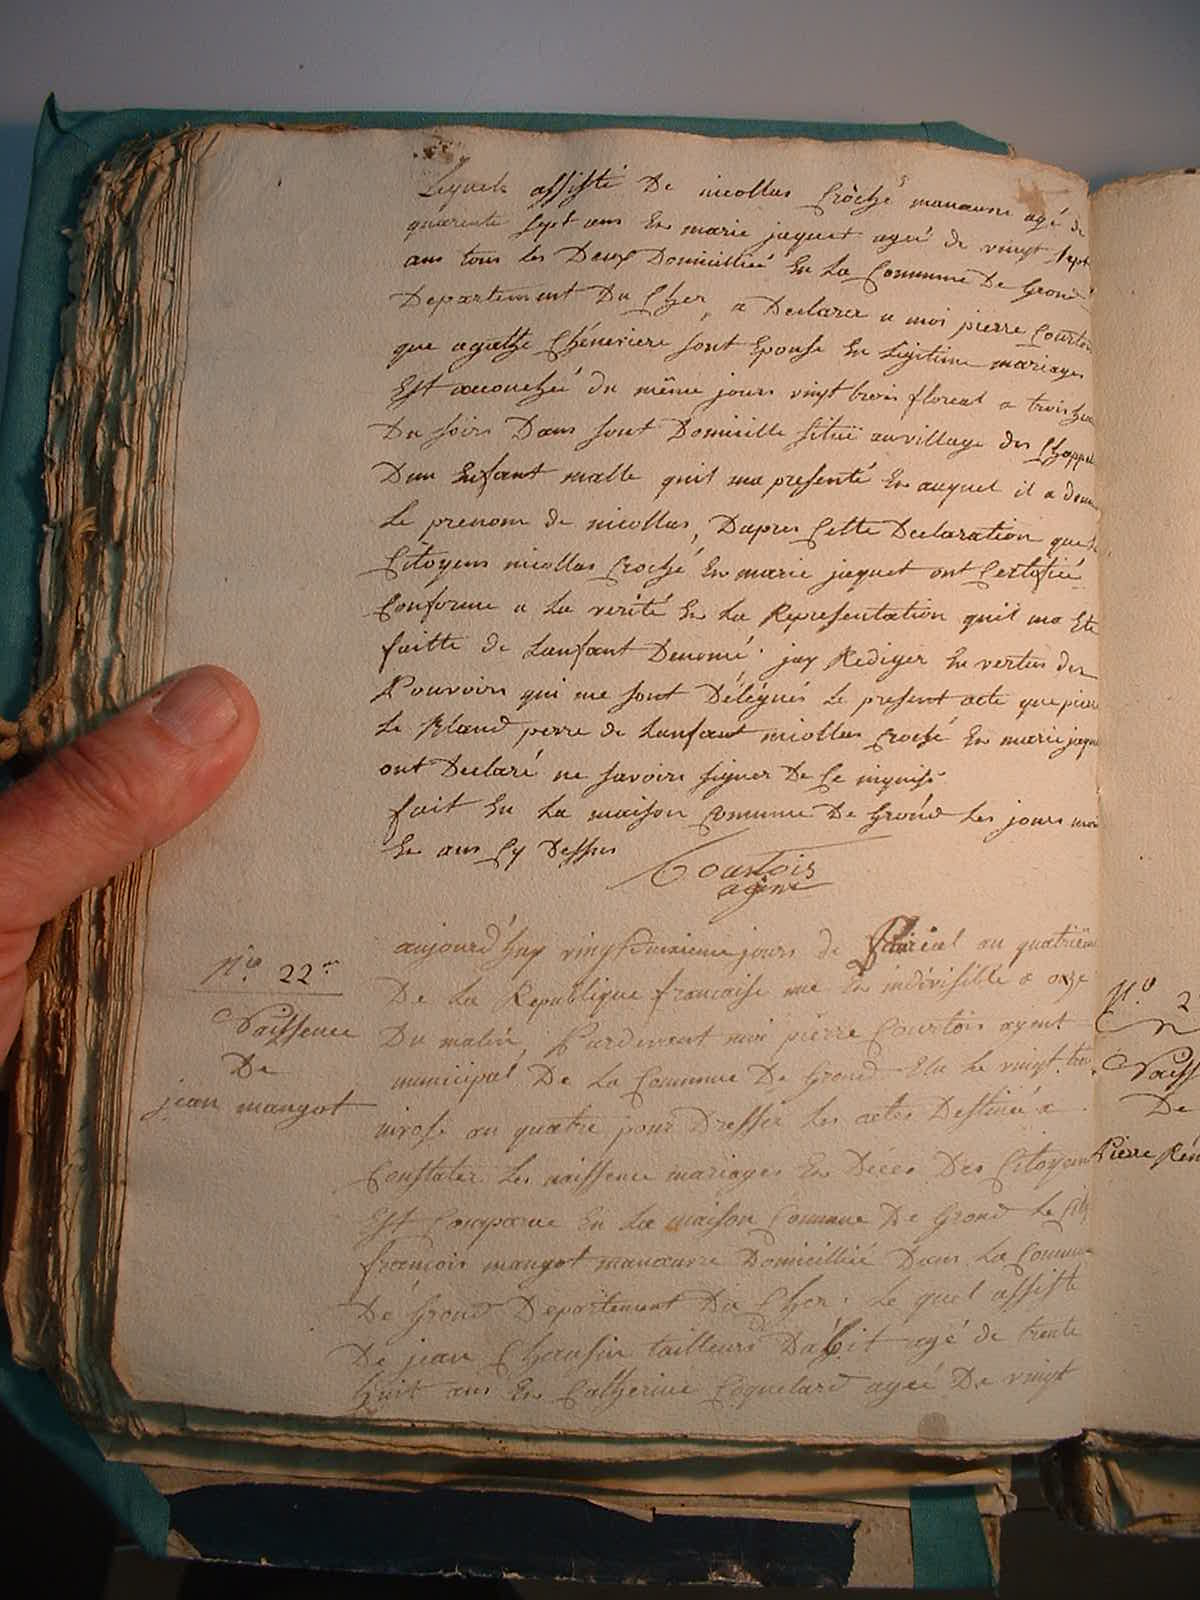 Lequels assisté De nicollas Croché manœuvre agé de
quarente sept ans En marie jaquet ageé de vingt sept
ans tous les Deux Domicilliéé En La Commune De Grond
Departement Du Cher, a Declarer a moi pierre Courtois
que agathe Chéneviere sont Epouse En Legitime mariages
Est acouchéé du même jours vingt trois floreal a trois heu
Du soirs Dans sont Domicille situé au village des Chappel
Dun Enfant malle quil ma presenté En auquel il a donn
Le prenom de nicollas, Dapres Cette Declaration que Le
Citoyens nicollas Croché En marie jaquet ont Certifiée
Conforme a La verité En La Representation quil ma Ete
faitte de Lanfant Denomé. jay Rediger En vertus des
Pouvoirs qui me sont Délégués Le present acte que pierre
Le Bland perre de Lanfant nicollas Croché En marie jaque
ont Declaré ne savoirs signer De Ce inquis
fait En La maison Comune De Grond Les jours moi
En ans Cy Dessus
Courtois
agent
N.o 22
Naissence
De
jean mangot
aujourd'huy jours de floréal an quatriem
De La Republique francaise une En indivisible a onze
Du matin, Pardevant moi pierre Courtois agent
municipal De La Commune De Grond Elu Le vingt trois
nivose an quatre pour Dresser Les actes Destinéé a
Constater Les naissence mariages En Décés Des Citoyens
Est Comparue En La maison Commune De Grond Le Cit
francois mangot manœuvre Domicilliéé Dans La Commune
De Grond Departement Du Cher. Le quel assisté
De jean tailleurs Dabit agé de trente
huit ans En Catherine Coquelard ageé De vingt
N.o 2
Naiss
De
Pierre Rén